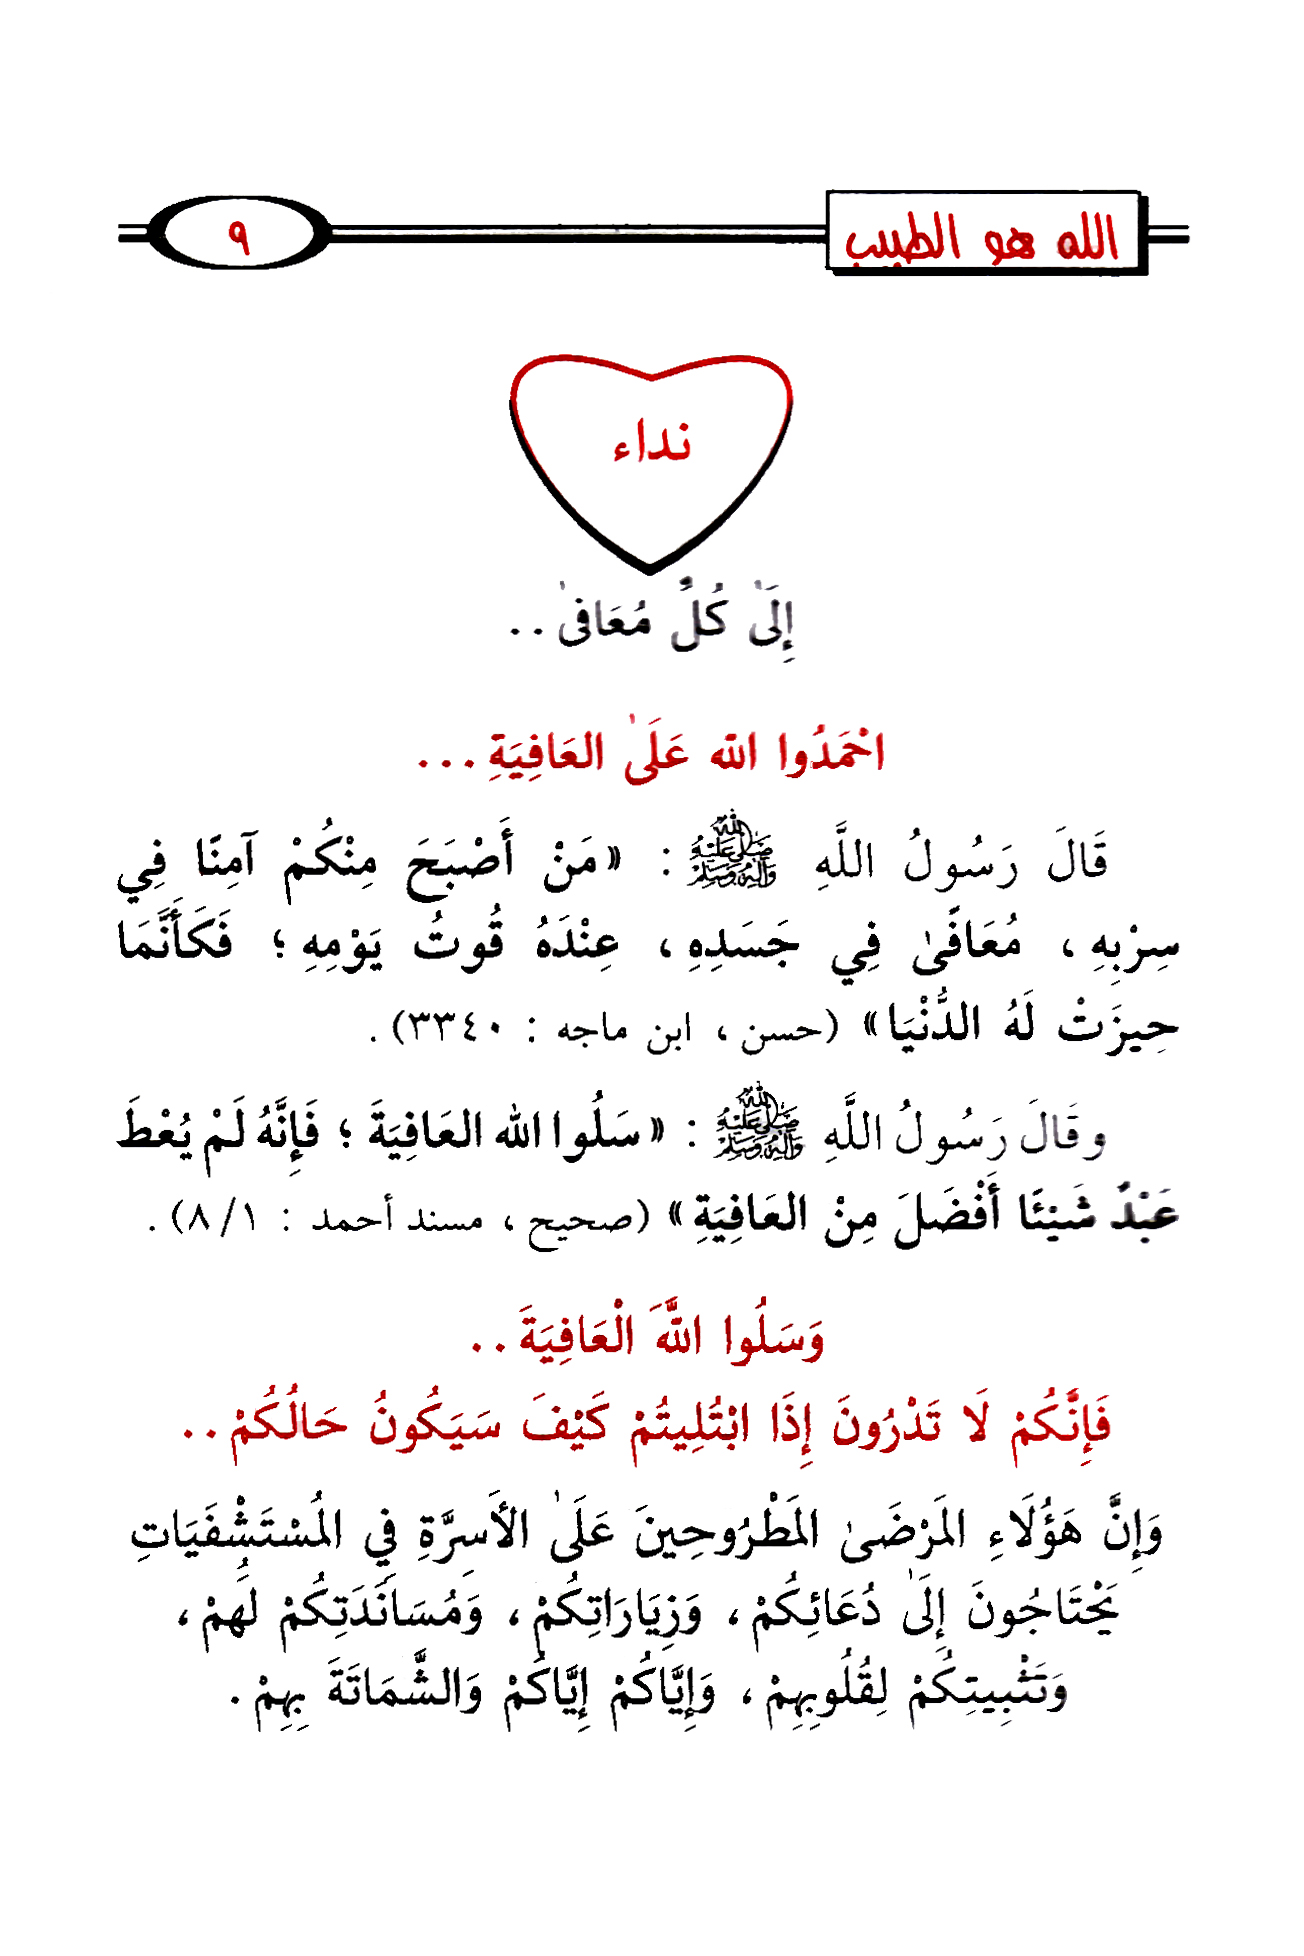 الله هو الطبيب
٩
نداء
إِلَىٰ كُلِّ مُعَافىٰ ..
احْمَدُوا الله عَلَىٰ العَافِيَةِ ...
قَالَ رَسُولُ اللَّهِ ﷺ : «مَنْ أَصْبَحَ مِنْكُمْ آمِنًا فِي
سِرْبِهِ ، مُعَافًىٰ فِي جَسَدِهِ ، عِنْدَهُ قُوتُ يَوْمِهِ ؛ فَكَأَنَّمَا
حِيزَتْ لَهُ الدُّنْيَا» (حسن ، ابن ماجه : ٣٣٤٠) .
وقَالَ رَسُولُ اللَّهِ ﷺ : «سَلُوا الله العَافِيَةَ ؛ فَإِنَّهُ لَمْ يُعْطَ
عَبْدٌ شَيْئًا أَفْضَلَ مِنْ العَافِيَةِ» (صحيح ، مسند أحمد : ٨/١) .
وَسَلُوا اللَّهَ الْعَافِيَةَ ..
فَإِنَّكُمْ لَا تَدْرُونَ إِذَا ابْتُلِيتُمْ كَيْفَ سَيَكُونُ حَالُكُمْ ..
وَإِنَّ هَؤُلَاءِ المَرْضَىٰ المَطْرُوحِينَ عَلَىٰ الأَسِرَّةِ فِي المُسْتَشْفَيَاتِ
يَحْتَاجُونَ إِلَىٰ دُعَائِكُمْ ، وَزِيَارَاتِكُمْ ، وَمُسَانَدَتِكُمْ لَهُمْ ،
وَتَثْبِيتِكُمْ لِقُلُوبِهِمْ ، وَإِيَّاكُمْ إِيَّاكُمْ وَالشَّمَاتَةَ بِهِمْ .